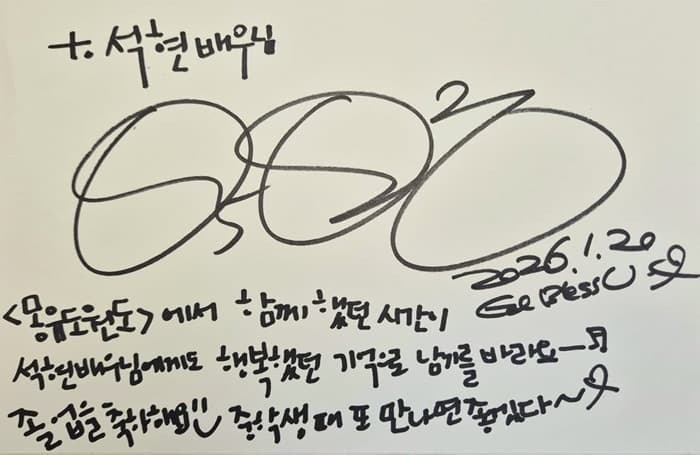 +. 석현배우님
2026.1.20
God Bless U
<몽유도원도>에서 함께했던 시간이
석현배우님에게도 행복했던 기억으로 남기를 바라요ㅡ♬
졸업을 축하해요!! 중학생 때 또 만나면 좋겠다~